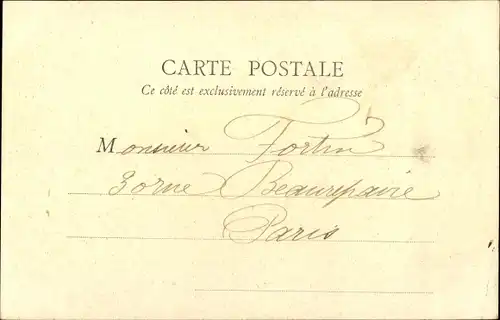 CARTE POSTALE
Ce côté est exclusivement réservé à l'adresse
Monsieur Fortin
3 rue Beaurepaire
Paris